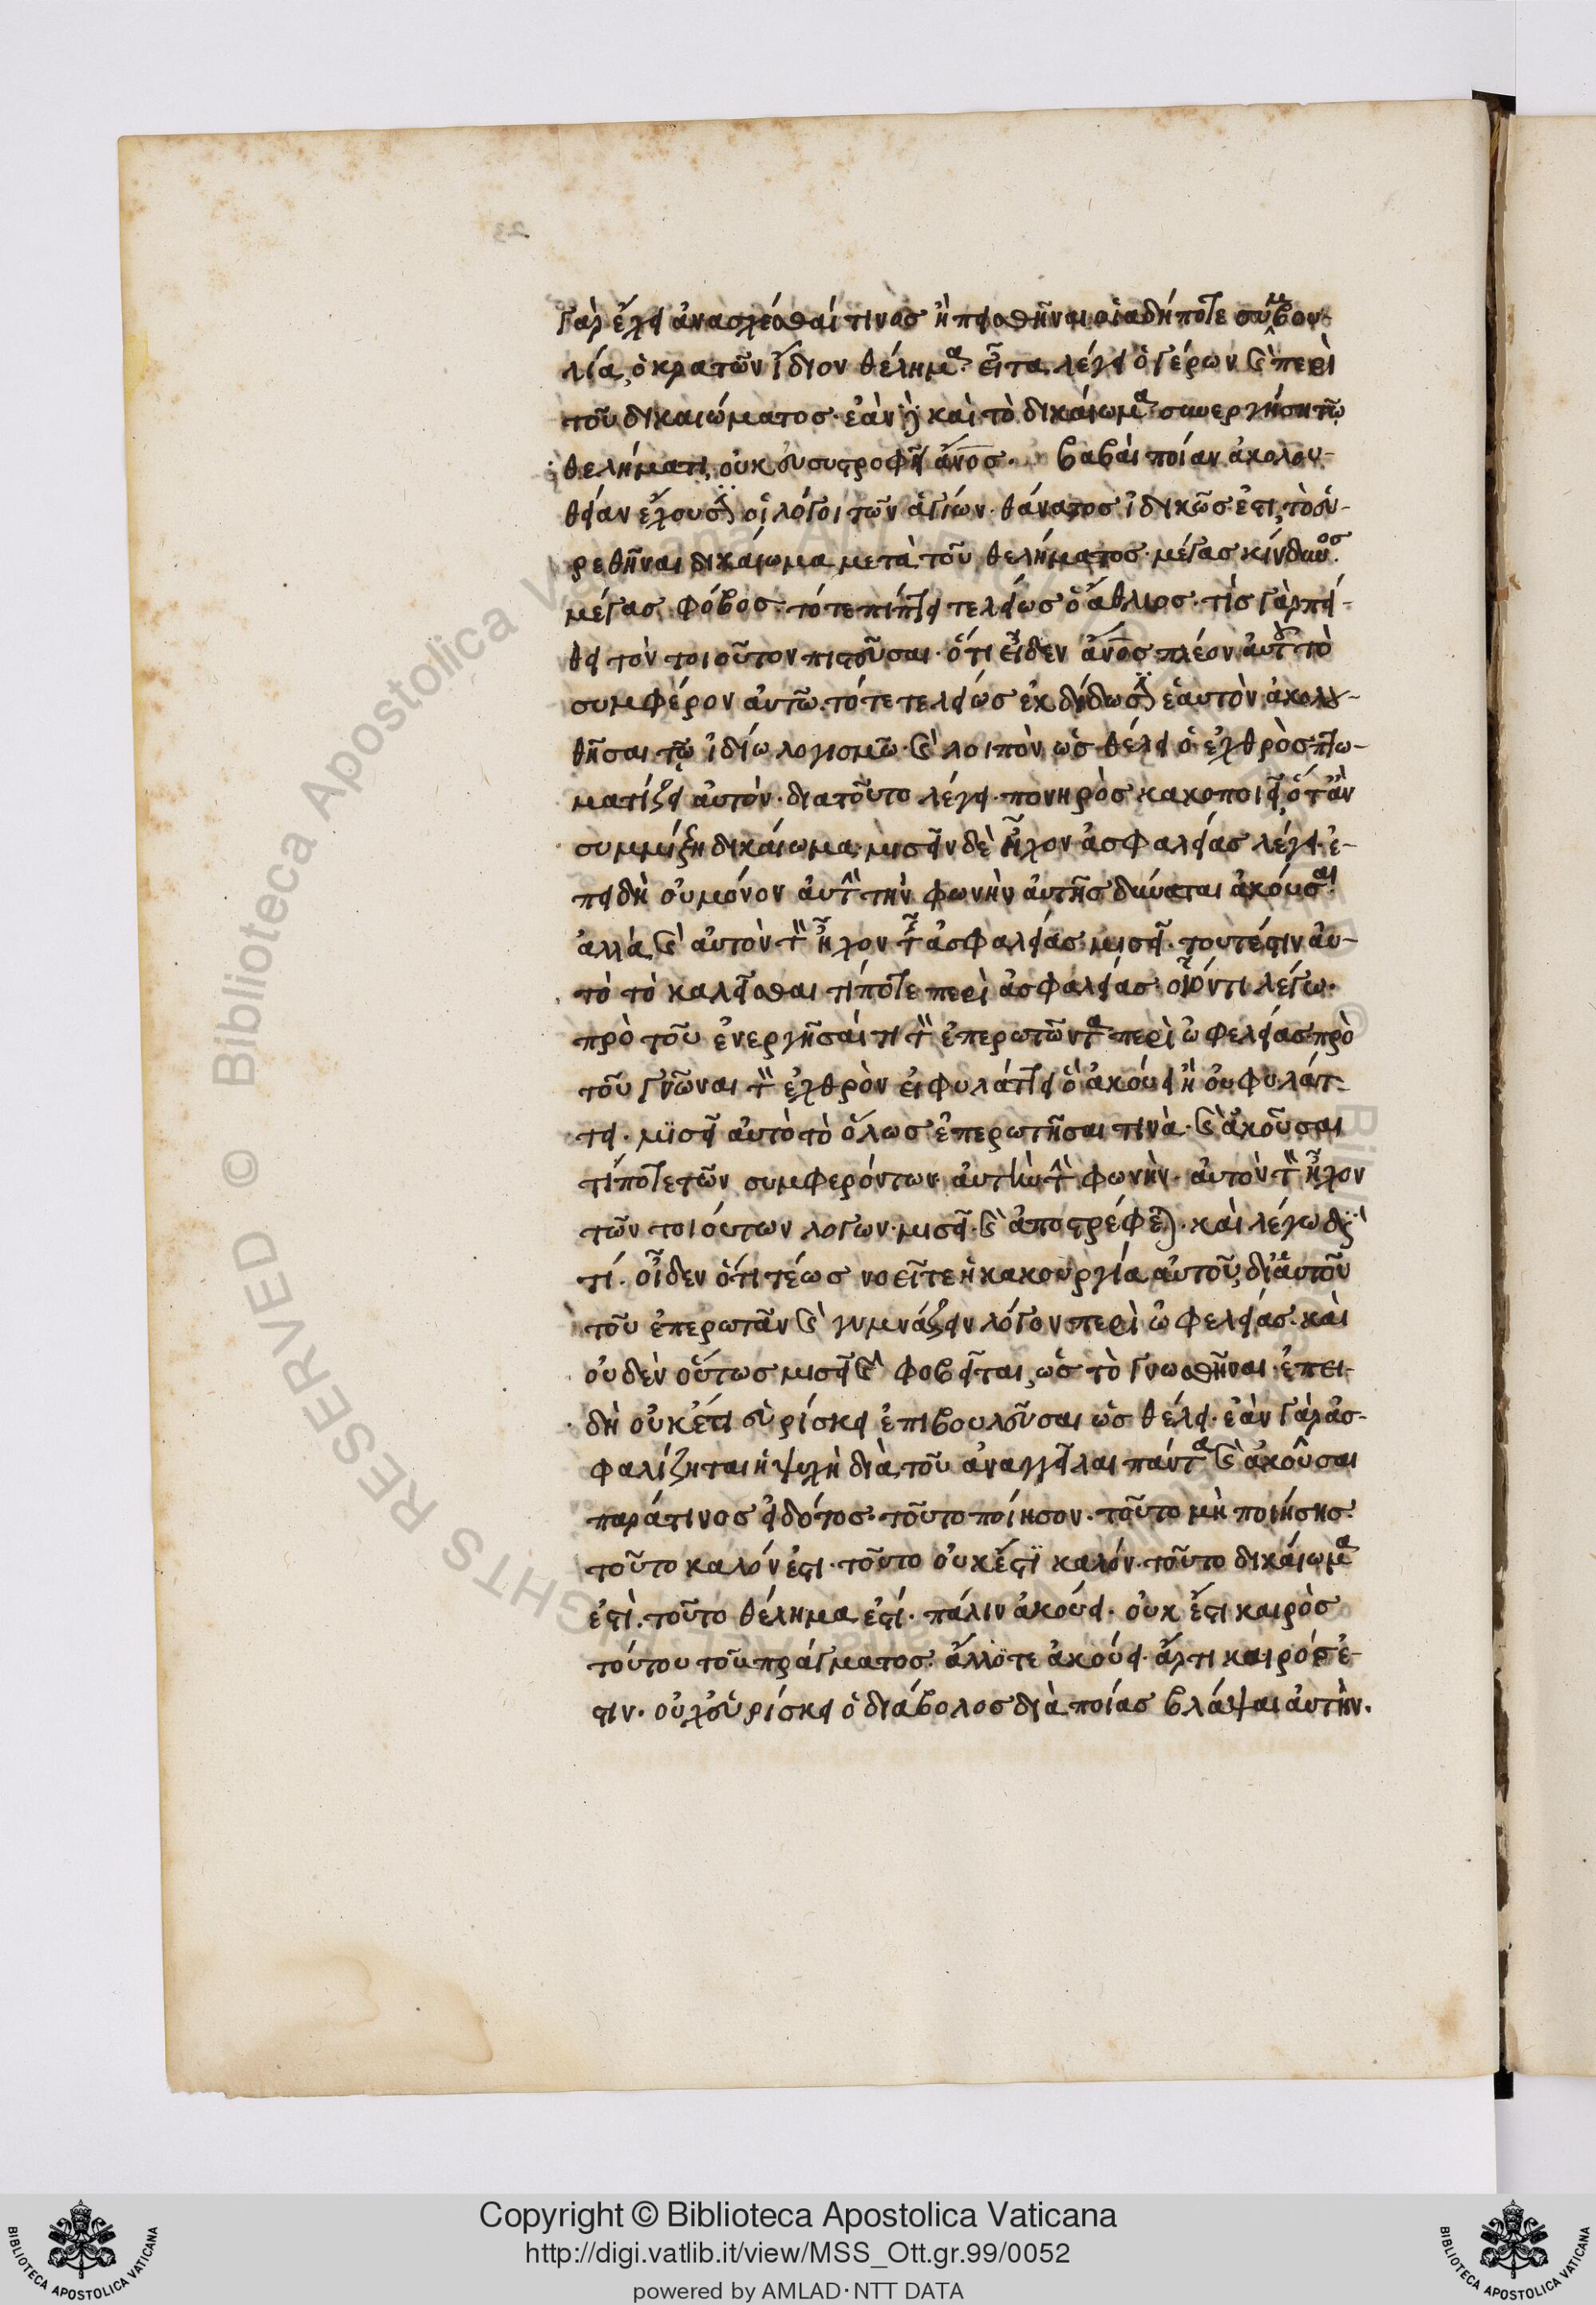 γὰρ ἔχει ἀνασχέσθαί τινος ἢ πεισθῆναι οἱαδήποτε συμβου-
λία, ὁ κρατῶν ἴδιον θέλημα· εἶτα λέγει ὁ γέρων καὶ περὶ
τοῦ δικαιώματος· ἐὰν δὲ καὶ τὸ δικαίωμα συνεργήση τῶ
θελήματι, οὐκ εὐστροφεῖ ἄνος· βαβαὶ ποίαν ἀκολου-
θείαν ἔχουσιν οἱ λόγοι τῶν ἁγίων· θάνατος ἰδικῶς ἐστι, τὸ εὑ-
ρεθῆναι δικαίωμα μετὰ τοῦ θελήματος· μέγας κίνδυνος·
μέγας φόβος· τότε πίπτει τελείως ὁ ἄθλιος· τίς γὰρ πεί-
θει τὸν τοιοῦτον πιστεῦσαι· ὅτι εἶδεν ἄνος πλέον αὐτοῦ τὸ
συμφέρον αὐτῶ· τότε τελείως ἐκδίδωσιν ἑαυτὸν ἀκολου-
θῆσαι τῶ ἰδίω λογισμῶ· καὶ λοιπὸν ὡς θέλει ὁ ἐχθρὸς πτω-
ματίζει αὐτὸν· διατοῦτο λέγει· πονηρὸς κακοποιεῖ, ὅταν
συμμίξη δικαίωμα· μισεῖν δὲ ἦχον ἀσφαλείας λέγει· ἐ-
πειδὴ οὐ μόνον αὐτὴν τὴν φωνὴν αὐτῆς δύναται ἀκοῦσαι·
ἀλλὰ καὶ αὐτὸν τὸν ἦχον τῆς ἀσφαλείας μισεῖ· τουτέστιν αὐ-
τὸ τὸ καλεῖσθαι τίποτε περὶ ἀσφαλείας· οἷόν τι λέγω·
πρὸ τοῦ ἐνεργῆσαί τι τὸν ἐπερωτῶντα περὶ ὠφελείας· πρὸ
τοῦ γνῶναι τὸν ἐχθρὸν εἰ φυλάττει ὃ ἀκούει ἢ οὐ φυλάτ-
τει· μισεῖ αὐτὸ τὸ ὅλως ἐπερωτῆσαι τινὰ· καὶ ἀκοῦσαι
τίποτε τῶν συμφερόντων· αὐτὴν τὴν φωνὴν· αὐτὸν τὸν ἦχον
τῶν τοιούτων λόγων· μισεῖ· καὶ ἀποστρέφεται· καὶ λέγω διὰ
τί· οἶδεν ὅτι τέως νοεῖτε ἡ κακουργία αὐτοῦ, δι' αὐτοῦ
τοῦ ἐπερωτᾶν καὶ γυμνάζειν λόγον περὶ ὠφελείας· καὶ
οὐδὲν οὕτως μισεῖ καὶ φοβεῖται, ὡς τὸ γνωσθῆναι· ἐπει-
δὴ οὐκέτι εὑρίσκει ἐπιβουλεῦσαι ὡς θέλει· ἐὰν γὰρ ἀσ-
φαλίζηται ἡ ψυχὴ διὰ τοῦ ἀναγγεῖλαι πάντα καὶ ἀκοῦσαι
παράτινος εἰδότος· τοῦτο ποίησον· τοῦτο μὴ ποιήσης·
τοῦτο καλόν ἐστι· τοῦτο οὐκ ἔστι καλόν· τοῦτο δικαίωμα
ἐστὶ· τοῦτο θέλημα ἐστί· πάλιν ἀκούει· οὐκ ἔστι καιρὸς
τούτου τοῦ πράγματος· ἄλλοτε ἀκούει· ἄρτι καιρός ἐ-
στιν· οὐχ εὑρίσκει ὁ διάβολος διὰ ποίας βλάψαι αὐτὴν·
Copyright © Biblioteca Apostolica Vaticana
http://digi.vatlib.it/view/MSS_Ott.gr.99/0052
powered by AMLAD·NTT DATA